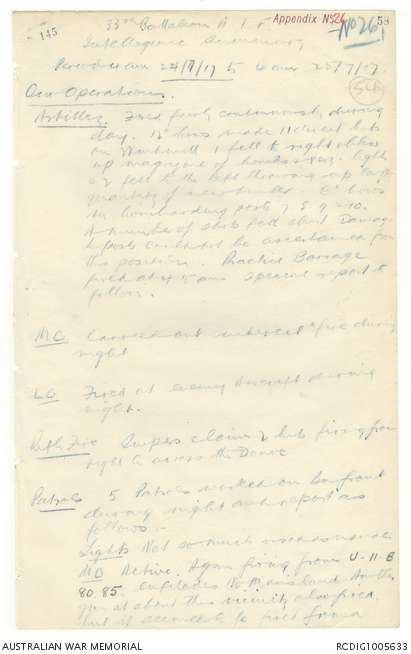 145
33rd Battalion A.I.F.
Appendix No 26
No 26
58
Intelligence Summary
Period 4 am 24/7/17 to 4 am 25/7/17
54
Our Operations
Artillery. Fired fairly continuously during
day. 15" hows made 11 direct hits
on 1 fell to right &
up magazine of bombs &
of fell to the left throwing up large
quantity of hows
bombarding posts 7, 8, 9 - 10.
A number of shots fell short. Damage
to posts could not be ascertained from
this position. Practice Barrage
fired at 4.5 am special report to
follow.
MG Carried out indirect fire during
night
LG Fired at enemy Aircraft during
night.
Rifle Fire Snipers claim 2 hits firing from
right across the Douve
Patrols 5 Patrols worked on Bn front
during night and report as
follows:-
Lights Not so much used as usual
MG Active. Again firing from U-11-B
80.85. enfilades No Mans land. Another
gun at about this vicinity also fired
but it seemed to fired from a
AUSTRALIAN WAR MEMORIAL
RCDIG1005633